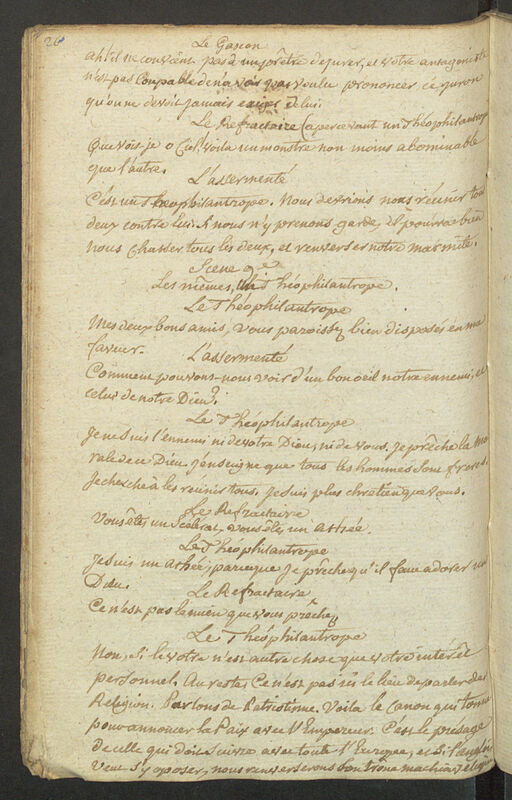 26
Le Gascon
ah! il ne convient pas à un prêtre de jurer, et votre antagoniste
n'est pas coupable de n'avoir pas voulu prononcer ce juron
qu'on ne devoit jamais exiger de lui.
Le Refractaire (apercevant un Théophilantrop
Que vois-je o Ciel! Voila un monstre non moins abominable
que l'autre.
L'assermenté
C'est un Theophilantrope. Nous devrions nous réunir tous
deux contre lui. Si nous n'y prenons garde, il pourra bien
nous chasser tous les deux, et renverser notre marmite.
Scene 9e
Les mêmes, Un Théophilantrope.
Le Théophilantrope
Mes deux bons amis, Vous paroissez bien disposés en ma
faveur.
L'assermenté
Comment pouvons-nous voir d'un bon oeil notre ennemi, et
celui de notre Dieu?
Le Théophilantrope
Je ne suis l'ennemi ni de votre Dieu, ni de vous. Je prêche la mo
rale de ce Dieu. J'enseigne que tous les hommes sont freres.
Je cherche à les réunir tous. Je suis plus chrétien que vous.
Le Refractaire
Vous êtes un Scélérat, vous êtes un athée.
Le Théophilantrope
Je suis un athée, parceque je prêche qu'il faut adorer un
Dieu.
Le Refractaire
Ce n'est pas le mien que vous prêchez
Le Théophilantrope
Non, si le votre n'est autre chose que votre intérêt
personnel. Au reste, ce n'est pas ici le lieu de parler de
Religion. Parlons de Patriotisme. Voila le canon qui tonne
pour annoncer la Paix avec l'Empereur. C'est le présage
de celle qui doit suivre avec toute l'Europe, et si l'anglois
veut s'y oposer, nous renverserons son trône